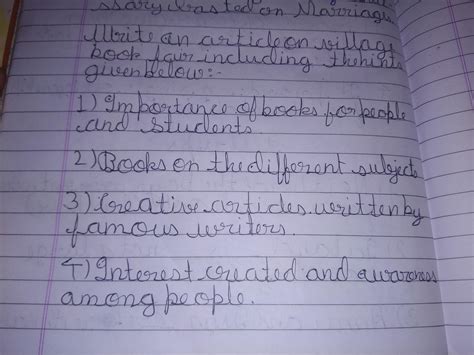 ssary wasted on Marriage
Write an article on villag
book fair including the hints
given below:-
1) Importance of books for people
and students
2) Books on the different subject
3) Creative articles written by
famous writers.
4) Interest created and awareness
among people.